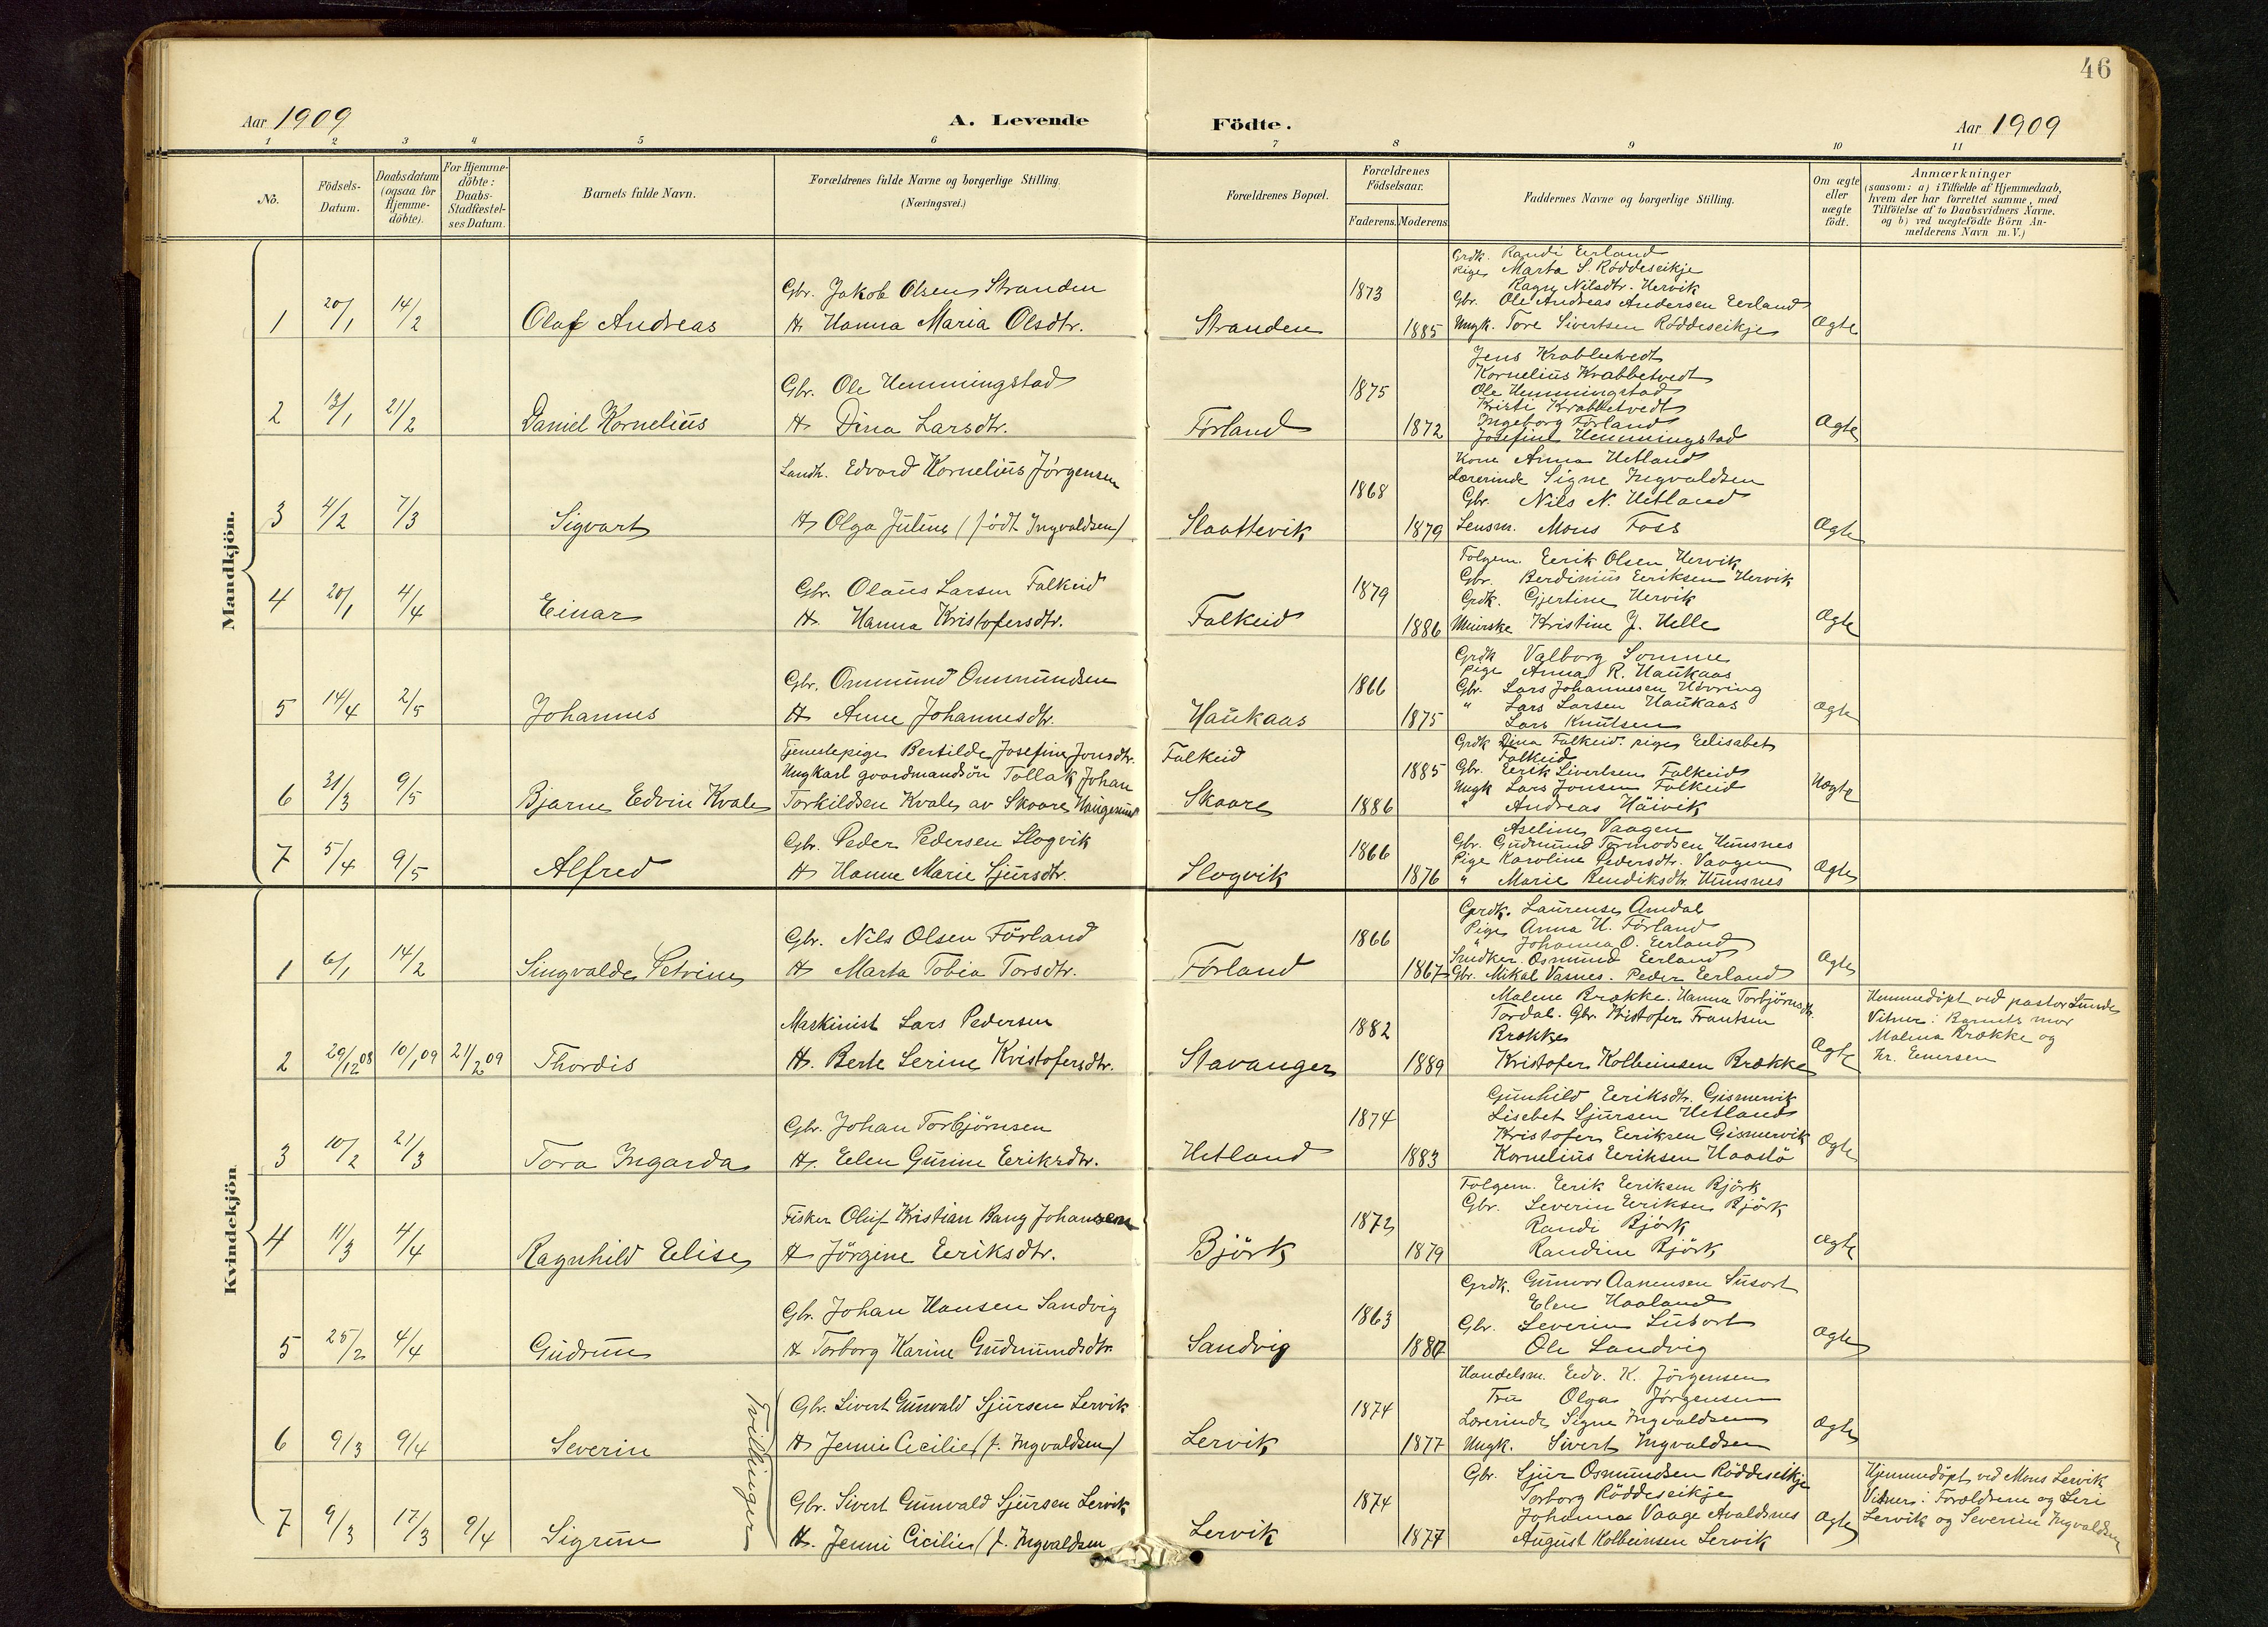 46
Aar 1909
A. Levende
Födte.
Aar 1909
1 2 3 4 5 6 7 8 9 10 11
No.
Födsels-
Datum.
Daabsdatum
(ogsaa for
Hjemme-
döbte).
For Hjemme-
döbte:
Daabs-
Stadfæstel-
ses Datum.
Barnets fulde Navn.
Forældrenes fulde Navne og borgerlige Stilling.
(Næringsvei.)
Forældrenes Bopæl.
Forældrenes
Födselsaar.
Faderens. Moderens
Faddernes Navne og borgerlige Stilling.
Om ægte
eller
uægte
födt.
Anmærkninger
(saasom: a) i Tilfælde af Hjemmedaab,
hvem der har forrettet samme, med
Tilföielse af to Daabsvidners Navne.
og b) ved uægtefödte Börn An-
melderens Navn m. V.)
Mandkjön.
1 20/1 14/2 Olaf Andreas
Gbr. Jakob Olsen Stranden
H. Hanna Maria Olsdtr.
Stranden 1873 1885
Grdk. Randi Eerland
Pige Marta S. Røddeseikje
Ragn Nilsdtr. Hervik
Gbr. Ole Andreas Andersen Eerland
Ungk. Tore Sivertsen Røddeseikje
Ægte
2 13/1 21/2 Daniel Kornelius
Gbr. Ole Hemmingstad
H. Dina Larsdtr.
Førland 1875 1872
Jens Krabbetvedt
Kornelius Krabbetvedt
Ole Hemmingstad
Kristi Krabbetvedt
Ingeborg Førland
Josefine Hemmingstad
Ægte
3 4/2 7/3 Sigvart
Landh. Edvard Kornelius Jørgensen
H. Olga Juline (født Ingvaldsen)
Slaattevik 1868 1879
Kone Anna Hetland
Lærerinde Signe Ingvaldsen
Gbr. Nils N. Hetland
Lensm. Mons Foss
Ægte
4 20/1 4/4 Einar
Gbr. Olaus Larsen Falkeid
H. Hanna Kristofersdtr.
Falkeid 1879 1886
Folgem. Eerik Olsen Hervik
Gbr. Berdinius Eeriksen Hervik
Grdk. Gjertine Hervik
Meierske Kristine J. Helle
Ægte
5 14/4 2/5 Johannes
Gbr. Ommund Ommundsen
H. Anne Johannesdtr.
Haukaas 1866 1875
Grdk Valborg Somme
Pige Anna R. Haukaas
Gbr. Lars Johannesen Høvring
" Lars Larsen Haukaas
Lars Knutsen
Ægte
6 31/3 9/5 Bjarne Edvin Kvale
Tjenestepige Bertilde Josefine Jonsdtr.
Ungkarl gaardmandsøn Tollak Johan
Torkildsen Kvale av Skaare Haugesund
Falkeid
Skaare 1885 1886
Grdk Dina Falkeid. pige Eelisabet
Falkeid
Gbr. Eerik Sivertsen Falkeid
Ungk Lars Jonsen Falkeid
" Andreas Høivik
Uægte
7 5/4 9/5 Alfred
Gbr. Peder Pedersen Slogvik
H. Hanne Marie Sjursdtr.
Slogvik 1866 1876
Aseline Vaagen
Gbr. Gudmund Tormodsen Hunsnes
Pige Karoline Pedersdtr. Vaagen
" Marie Bendiksdtr. Hunsnes
Ægte
Kvindekjön
1 6/1 14/2 Singvalde Petrine
Gbr. Nils Olsen Førland
H. Marta Tobia Torsdtr.
Førland 1866 1867
Grdk. Laurense Amdal
Pige Anna H. Førland
" Johanna O. Eerland
Snedker Osmund Eerland
Gbr. Mikal Vasnes. Peder Eerland
Ægte
2 29/12 08 10/1 09 21/2 09 Thordis
Maskinist Lars Pedersen
H. Berte Serine Kristofersdtr.
Stavanger 1882 1889
Malene Brække. Hanna Torbjørnsdtr.
Tordal. Gbr. Kristofer Frantsen
Brække
Kristofer Kolbeinsen Brække
Ægte
Hemmedøpt ved pastor Lunde
Vitner: Barnets mor
Malena Brække og
Kr. Emersen
3 10/2 21/3 Tora Ingarda
Gbr. Johan Torbjørnsen
H. Eelen Gurine Eeriksdtr.
Hetland 1874 1883
Gunhild Eeriksdtr. Gismervik
Lisebet Sjursen Hetland
Kristofer Eeriksen Gismervik
Kornelius Eeriksen Haaslø
Ægte
4 11/3 4/4 Ragnhild Eelise
Fisker Oluf Kristian Bang Johansen
H Jörgine Eeriksdtr.
Björk 1872 1879
Folgem. Eerik Eeriksen Björk
Gbr. Severin Eeriksen Björk
Randi Björk
Randine Björk
Ægte
5 25/2 4/4 Gudrun
Gbr. Johan Hansen Sandvig
H Torborg Karine Gudmundsdtr.
Sandvig 1863 1880
Grdk. Gunvor Aanensen Susort
Elen Haaland
Gbr. Severin Susort
Ole Sandvig
Ægte
Tvillinger
6 9/3 9/4 Severin
Gbr. Sivert Gunvald Sjursen Lervik
H Jenni Cecilie (f. Ingvaldsen)
Lervik 1874 1877
Handelsm. Edv. K. Jørgensen
Fru Olga Jørgensen
Lærerinde Signe Ingvaldsen
Ungk. Sivert Ingvaldsen
Ægte
7 9/3 17/3 9/4 Sigrun
Gbr. Sivert Gunvald Sjursen Lervik
H. Jenni Cicilie (f. Ingvaldsen
Lervik 1874 1877
Gbr. Sjur Osmundsen Røddeseikje
Torborg Røddeseikje
Johanna Vaage Avaldsnes
August Kolbeinsen Lervik
Ægte
Hjemmedøpt ved Mons Lervik
Vitner: Forældrene og Siri
Lervik og Severine Ingvaldsen